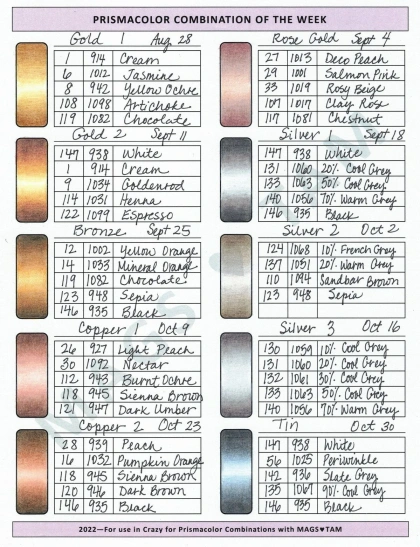 PRISMACOLOR COMBINATION OF THE WEEK
Gold 1 Aug 28
1 914 Cream
6 1012 Jasmine
8 942 Yellow Ochre
108 1098 Artichoke
119 1082 Chocolate
Gold 2 Sept 11
147 938 White
1 914 Cream
9 1034 Goldenrod
114 1031 Henna
122 1099 Espresso
Bronze Sept 25
12 1002 Yellow Orange
14 1033 Mineral Orange
119 1082 Chocolate
123 948 Sepia
146 935 Black
Copper 1 Oct 9
26 927 Light Peach
30 1092 Nectar
112 943 Burnt Ochre
118 945 Sienna Brown
121 947 Dark Umber
Copper 2 Oct 23
28 939 Peach
16 1032 Pumpkin Orange
118 945 Sienna Brown
120 946 Dark Brown
146 935 Black
Rose Gold Sept 4
27 1013 Deco Peach
29 1001 Salmon Pink
33 1019 Rosy Beige
107 1017 Clay Rose
117 1081 Chestnut
Silver 1 Sept 18
147 938 White
131 1060 20% Cool Grey
133 1063 50% Cool Grey
140 1056 70% Warm Grey
146 935 Black
Silver 2 Oct 2
124 1068 10% French Grey
137 1051 20% Warm Grey
110 1094 Sandbar Brown
123 948 Sepia
Silver 3 Oct 16
130 1059 10% Cool Grey
131 1060 20% Cool Grey
132 1061 30% Cool Grey
133 1063 50% Cool Grey
140 1056 70% Warm Grey
Tin Oct 30
147 938 White
56 1025 Periwinkle
142 936 Slate Grey
135 1067 90% Cool Grey
146 935 Black
2022—For use in Crazy for Prismacolor Combinations with MAGS♥TAM